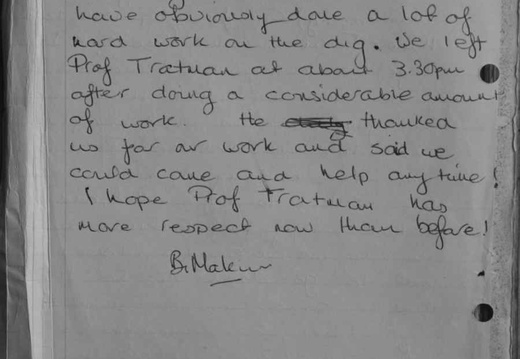 have obviously done a lot of
hard work on the dig. We left
Prof Tratman at about 3.30pm
after doing a considerable amount
of work. He thanked
us for our work and said we
could come and help any time!
I hope Prof Tratman has
more respect now than before!